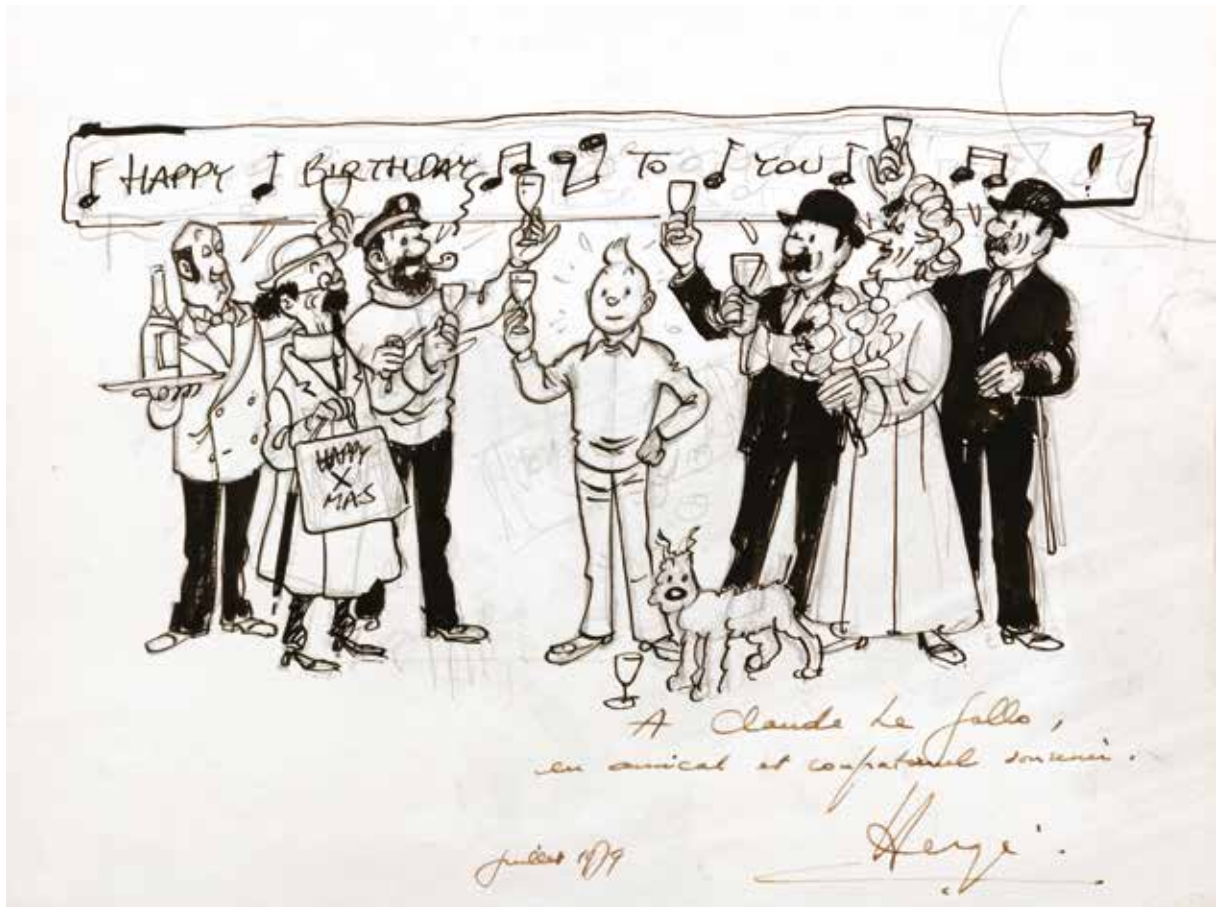 HAPPY BIRTHDAY TO YOU !
HAPPY
X
MAS
A Claude Le Gallo,
en amical et confraternel souvenir.
Hergé.
juillet 1979